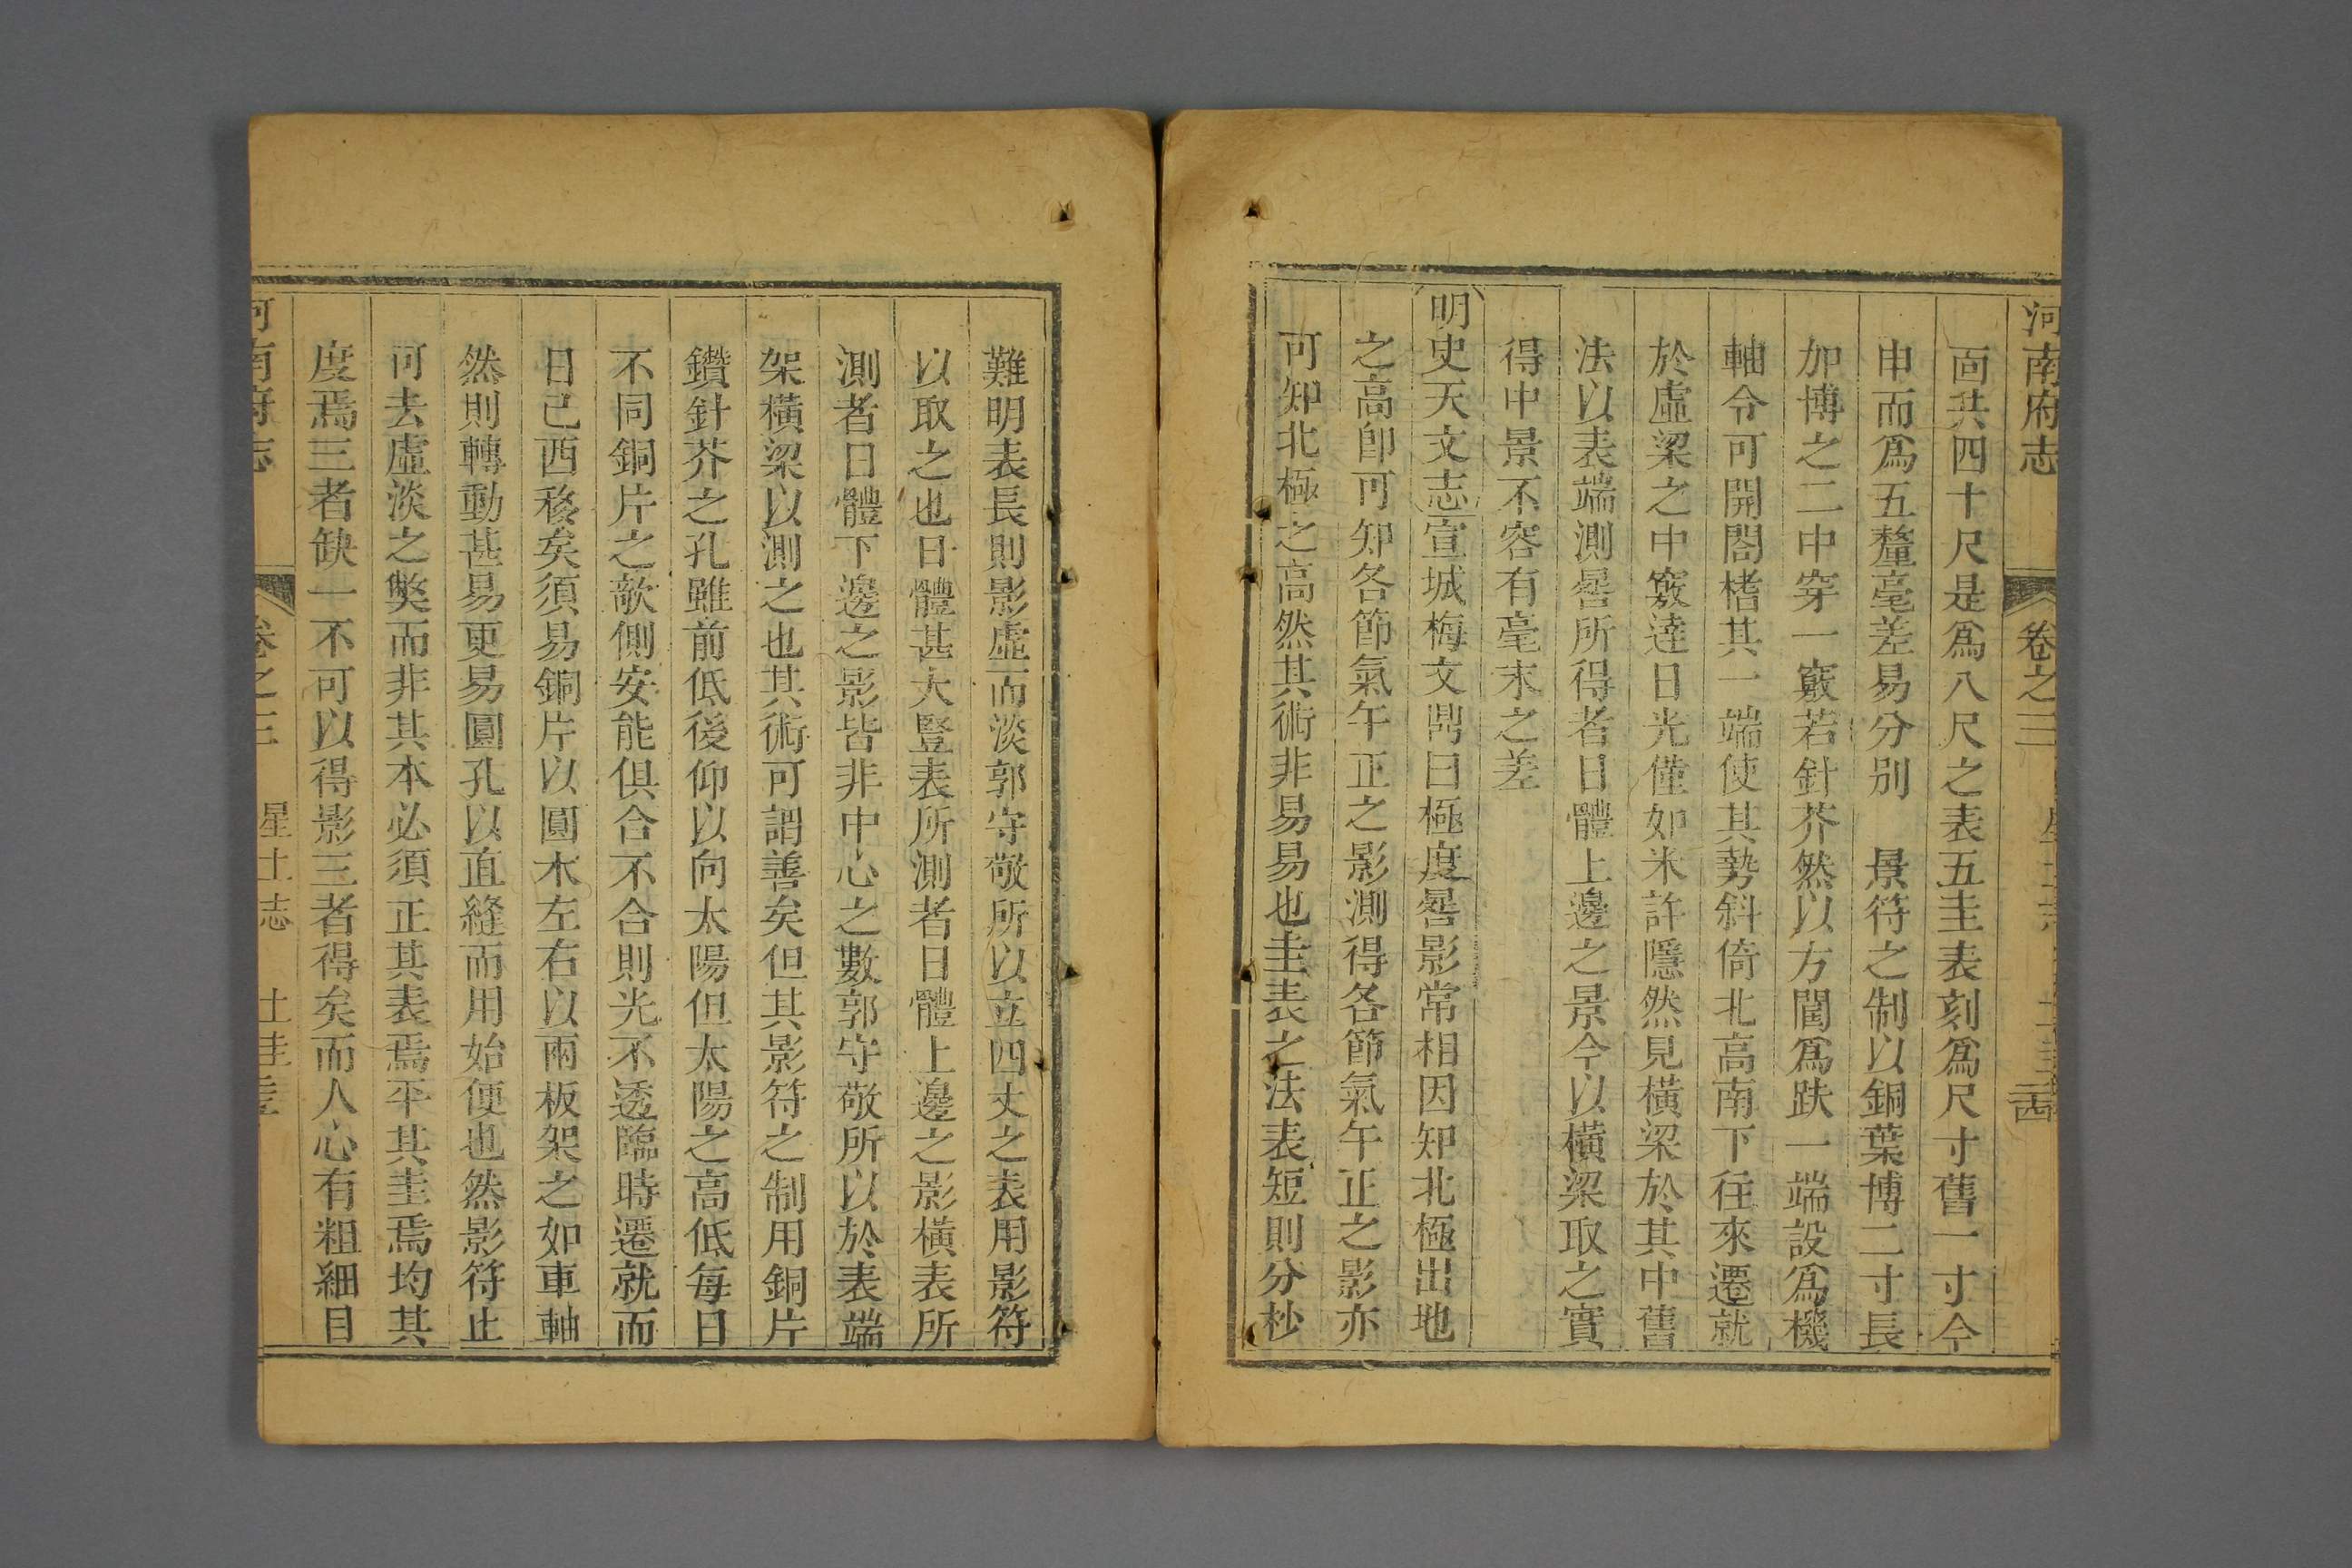 河南府志 卷之三
面共四十尺是爲八尺之表五圭表刻爲尺寸舊一寸今
申而爲五釐毫差易分別 景符之制以銅葉博二寸長
加博之二中穿一竅若針芥然以方𨵿爲趺一端設爲機
軸令可開閤榰其一端使其勢斜倚北高南下往來遷就
於虛梁之中竅達日光僅如米許隱然見橫梁於其中舊
法以表端測晷所得者日體上邊之景今以橫梁取之實
得中景不容有毫末之差
明史天文志宣城梅文鼎曰極度晷影常相因知北極出地
之高卽可知各節氣午正之影測得各節氣午正之影亦
可知北極之高然其術非易易也圭表之法表短則分杪
難明表長則影虛而淡郭守敬所以立四丈之表用影符
以取之也日體甚大豎表所測者日體上邊之影橫表所
測者日體下邊之影皆非中心之數郭守敬所以於表端
架橫梁以測之也其術可謂善矣但其影符之制用銅片
鑽針芥之孔雖前低後仰以向太陽但太陽之高低每日
不同銅片之欹側安能俱合不合則光不透臨時遷就而
日已西移矣須易銅片以圓木左右以兩板架之如車軸
然則轉動甚易更易圓孔以直縫而用始便也然影符止
可去虛淡之弊而非其本必須正其表焉平其圭焉均其
度焉三者缺一不可以得影三者得矣而人心有粗細目
河南府志 卷之三 星土志 土圭